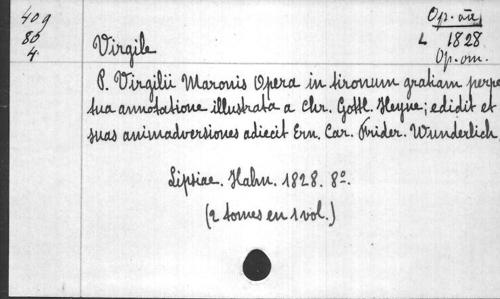 409 Op.
80 L 1828
4. Virgile Op. om.
P. Virgilii Maronis Opera in tironum gratiam perpe
tua annotatione illustrata a Chr. Gottl. Heyne; edidit et
suas animadversiones adiecit Ern. Car. Frider. Wunderlich,
Lipsiae. Hahn. 1828. 8º.
(2 tomes en 1 vol.)